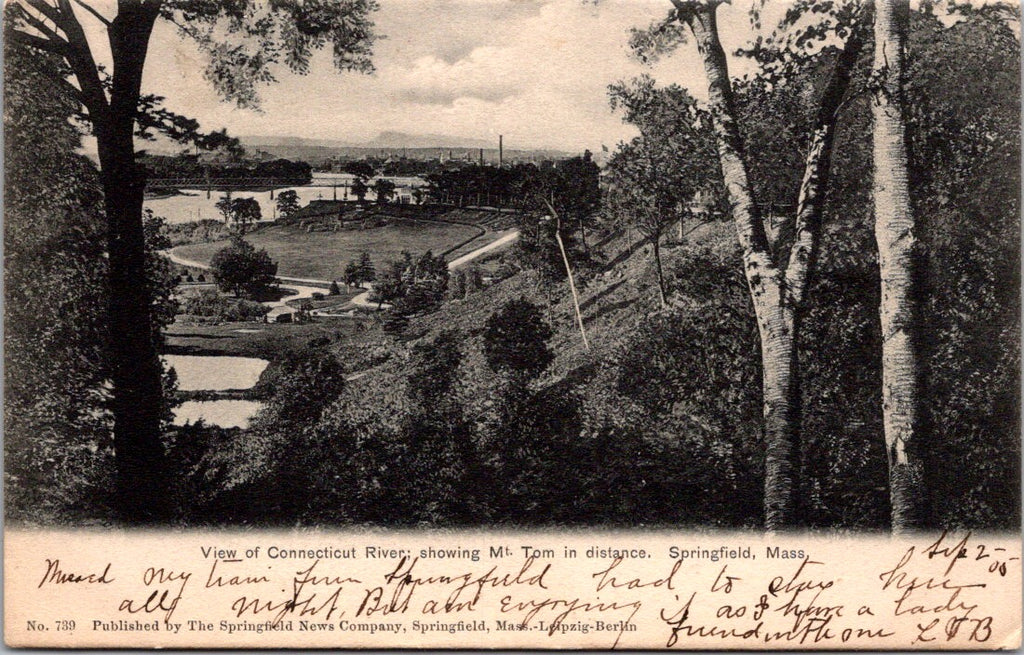 View of Connecticut River; showing Mt. Tom in distance. Springfield, Mass.
Sep 2-05
Missed my train from Springfield had to stay here
all night, But am enjoying it as I have a lady
friend with me L F B
No. 739 Published by The Springfield News Company, Springfield, Mass.-Leipzig-Berlin